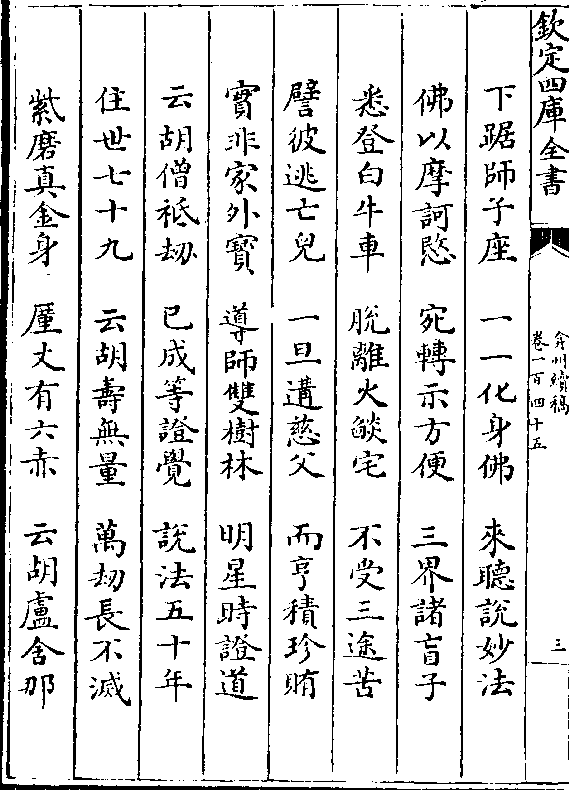 欽定四庫全書
弇州續稿
卷一百四十五
三
下踞師子座 一一化身佛 來聽說妙法
佛以摩訶愍 宛轉示方便 三界諸盲子
悉登白牛車 脫離火燄宅 不受三途苦
譬彼逃亡兒 一旦遘慈父 而亨積珍賄
實非家外寶 導師雙樹林 明星時證道
云胡僧祗劫 已成等證覺 說法五十年
住世七十九 云胡壽無量 萬劫長不滅
紫磨真金身 厪丈有六赤 云胡盧舍那